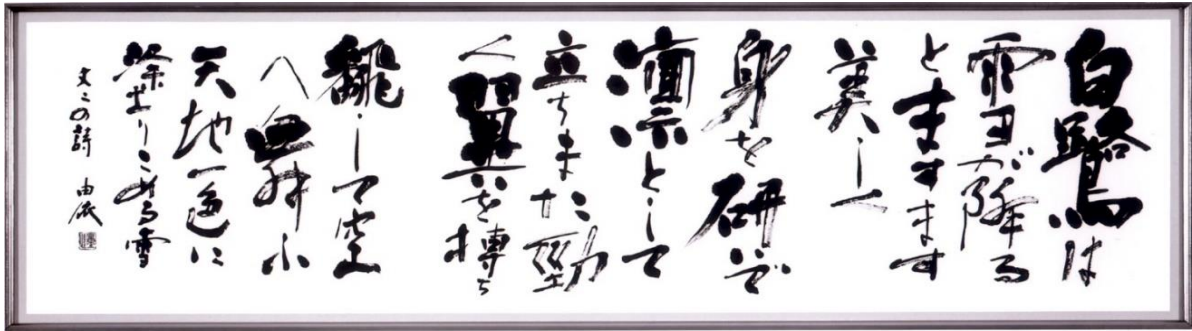 白鷺は
雪が降る
とますます
美しく
身を研ぎ
凛として
立ちまた勁
く翼を搏ち
飜して空
へ舞ふ
天地一色に
りこめる雪
文二の詩 由依